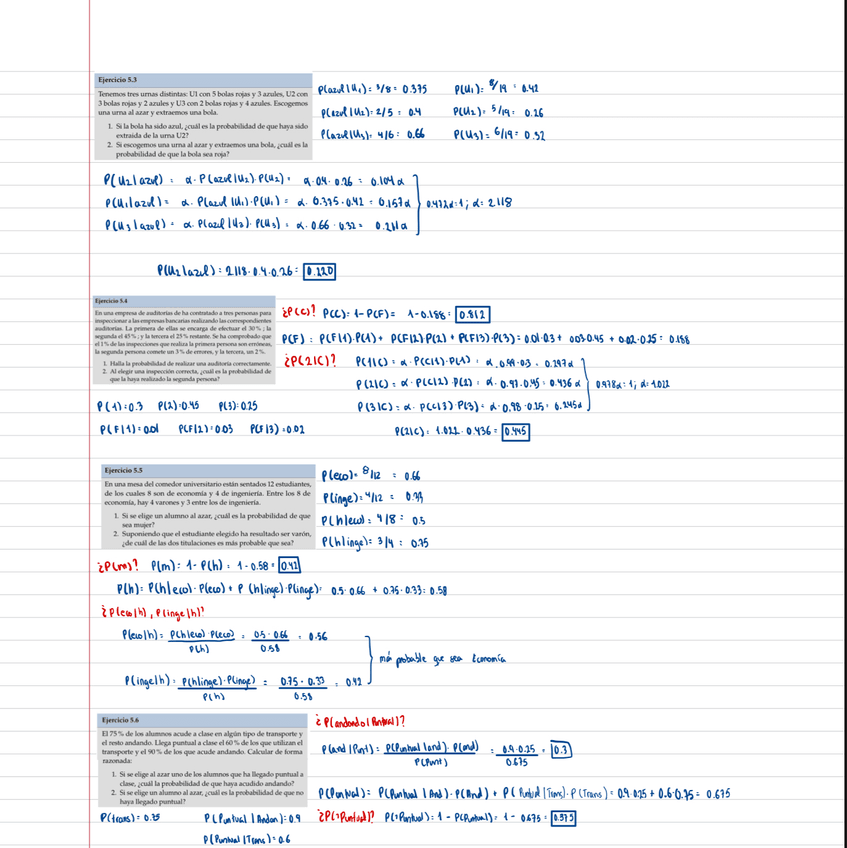 Ejercicio 5.3
Tenemos tres urnas distintas: U1 con 5 bolas rojas y 3 azules, U2 con
3 bolas rojas y 2 azules y U3 con 2 bolas rojas y 4 azules. Escogemos
una urna al azar y extraemos una bola.
1. Si la bola ha sido azul, ¿cuál es la probabilidad de que haya sido
extraida de la urna U2?
2. Si escogemos una urna al azar y extraemos una bola, ¿cuál es la
probabilidad de que la bola sea roja?
P(azul|U1) = 3/8 = 0.375 P(U1) = 8/19 = 0.42
P(azul|U2) = 2/5 = 0.4 P(U2) = 5/19 = 0.26
P(azul|U3) = 4/6 = 0.66 P(U3) = 6/19 = 0.32
P(U2|azul) = α · P(azul|U2) · P(U2) = α · 0.4 · 0.26 = 0.104α
P(U1|azul) = α · P(azul|U1) · P(U1) = α · 0.375 · 0.42 = 0.157α
P(U3|azul) = α · P(azul|U3) · P(U3) = α · 0.66 · 0.32 = 0.211α
0.472α = 1; α = 2.118
P(U2|azul) = 2.118 · 0.4 · 0.26 = 0.220
Ejercicio 5.4
En una empresa de auditorías de ha contratado a tres personas para
inspeccionar a las empresas bancarias realizando las correspondientes
auditorías. La primera de ellas se encarga de efectuar el 30% ; la
segunda el 45% ; y la tercera el 25% restante. Se ha comprobado que
el 1% de las inspecciones que realiza la primera persona son erróneas,
la segunda persona comete un 3% de errores, y la tercera, un 2%.
1. Halla la probabilidad de realizar una auditoría correctamente.
2. Al elegir una inspección correcta, ¿cuál es la probabilidad de
que la haya realizado la segunda persona?
¿P(C)? P(C) = 1 - P(F) = 1 - 0.188 = 0.812
P(F) = P(F|1)·P(1) + P(F|2)P(2) + P(F|3)·P(3) = 0.01·0.3 + 0.03·0.45 + 0.02·0.25 = 0.188
¿P(2|C)? P(1|C) = α · P(C|1) · P(1) = α · 0.99 · 0.3 = 0.297α
P(2|C) = α · P(C|2) · P(2) = α · 0.97 · 0.45 = 0.436α
0.978α = 1; α = 1.022
P(3|C) = α · P(C|3) · P(3) = α · 0.98 · 0.25 = 0.245α
P(1) = 0.3 P(2) = 0.45 P(3) = 0.25
P(F|1) = 0.01 P(F|2) = 0.03 P(F|3) = 0.02
P(2|C) = 1.022 · 0.436 = 0.445
Ejercicio 5.5
En una mesa del comedor universitario están sentados 12 estudiantes,
de los cuales 8 son de economía y 4 de ingeniería. Entre los 8 de
economía, hay 4 varones y 3 entre los de ingeniería.
1. Si se elige un alumno al azar, ¿cuál es la probabilidad de que
sea mujer?
2. Suponiendo que el estudiante elegido ha resultado ser varón,
¿de cuál de las dos titulaciones es más probable que sea?
P(eco) = 8/12 = 0.66
P(inge) = 4/12 = 0.33
P(h|eco) = 4/8 = 0.5
P(h|inge) = 3/4 = 0.75
¿P(m)? P(m) = 1 - P(h) = 1 - 0.58 = 0.42
P(h) = P(h|eco) · P(eco) + P(h|inge) · P(inge) = 0.5 · 0.66 + 0.75 · 0.33 = 0.58
¿P(eco|h), P(inge|h)?
P(eco|h) = P(h|eco) · P(eco) / P(h) = 0.5 · 0.66 / 0.58 = 0.56
más probable que sea Economía
P(inge|h) = P(h|inge) · P(inge) / P(h) = 0.75 · 0.33 / 0.58 = 0.42
Ejercicio 5.6
El 75% de los alumnos acude a clase en algún tipo de transporte y
el resto andando. Llega puntual a clase el 60% de los que utilizan el
transporte y el 90% de los que acude andando. Calcular de forma
razonada:
1. Si se elige al azar uno de los alumnos que ha llegado puntual a
clase, ¿cuál la probabilidad de que haya acudido andando?
2. Si se elige un alumno al azar, ¿cuál es la probabilidad de que no
haya llegado puntual?
¿P(andando|Puntual)?
P(and|Punt) = P(Puntual|and) · P(and) / P(Punt) = 0.9 · 0.25 / 0.675 = 0.3
P(Puntual) = P(Puntual|And) · P(And) + P(Puntual|Trans) · P(Trans) = 0.9 · 0.25 + 0.6 · 0.75 = 0.675
P(trans) = 0.75 P(Puntual|Andan) = 0.9
¿P(¬Puntual)? P(¬Puntual) = 1 - P(Puntual) = 1 - 0.675 = 0.375
P(Puntual|Trans) = 0.6